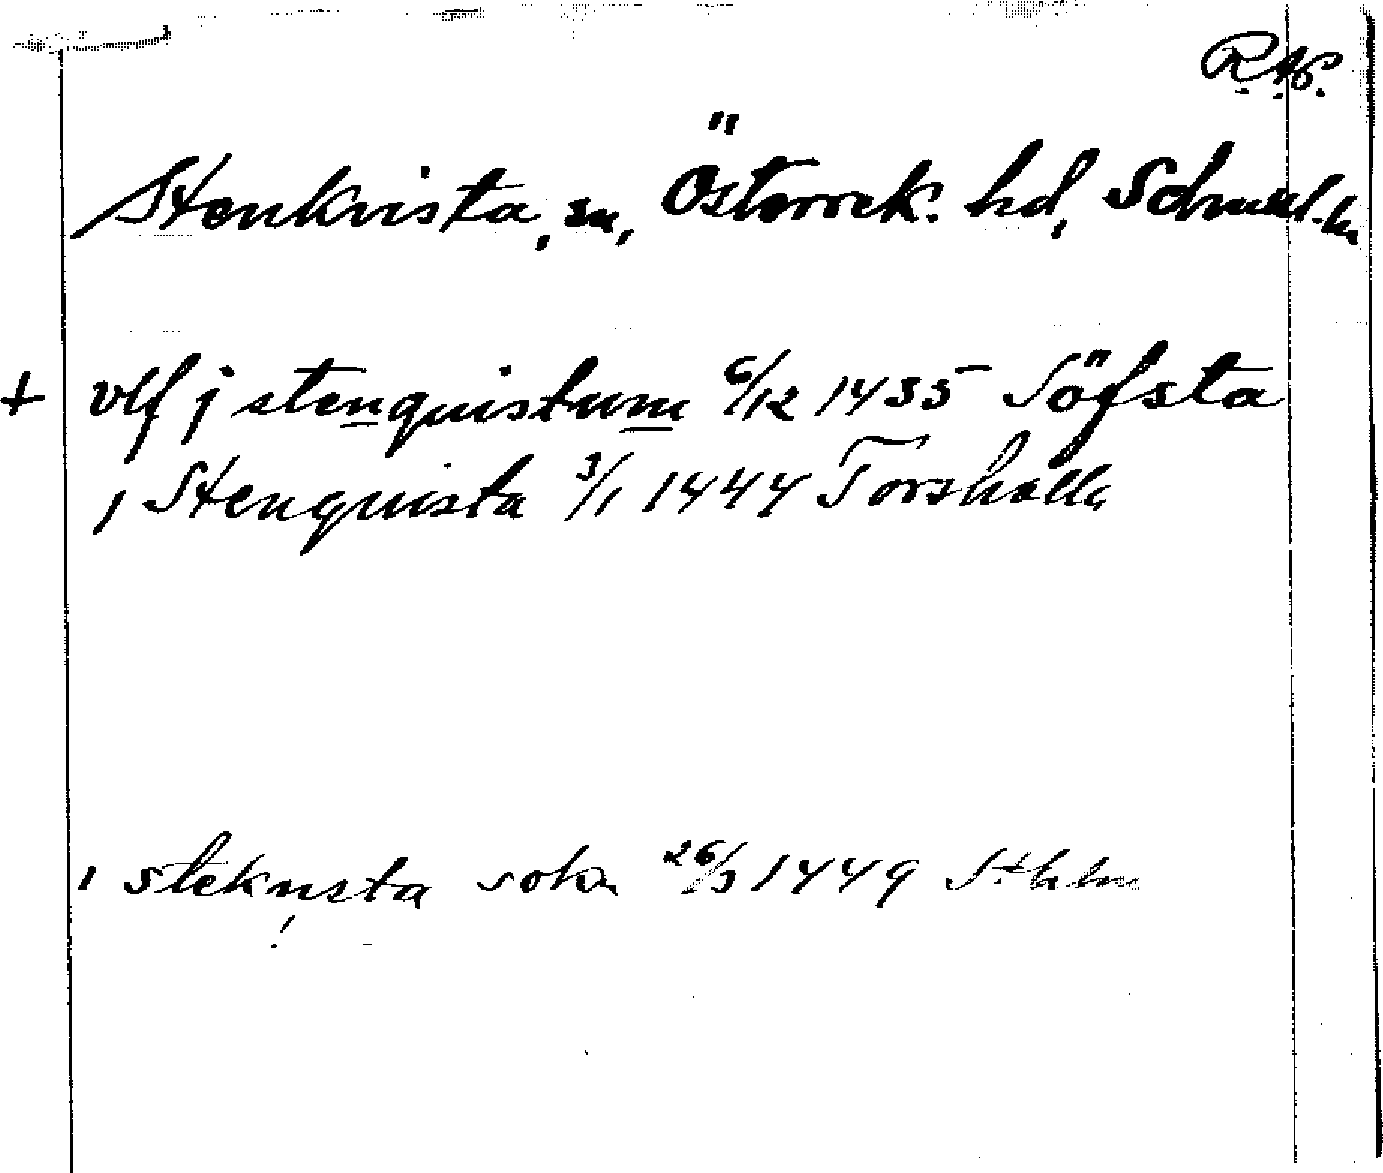 R.A.P.
Stenkvista, sn, Österrek. hd, Södmanl.
+ vlf j stenquistum 6/12 1435 Söfsta
j Stenquista 3/1 1444 Torshälla
i steknsta sokn 26/3 1449 Sthlm
!